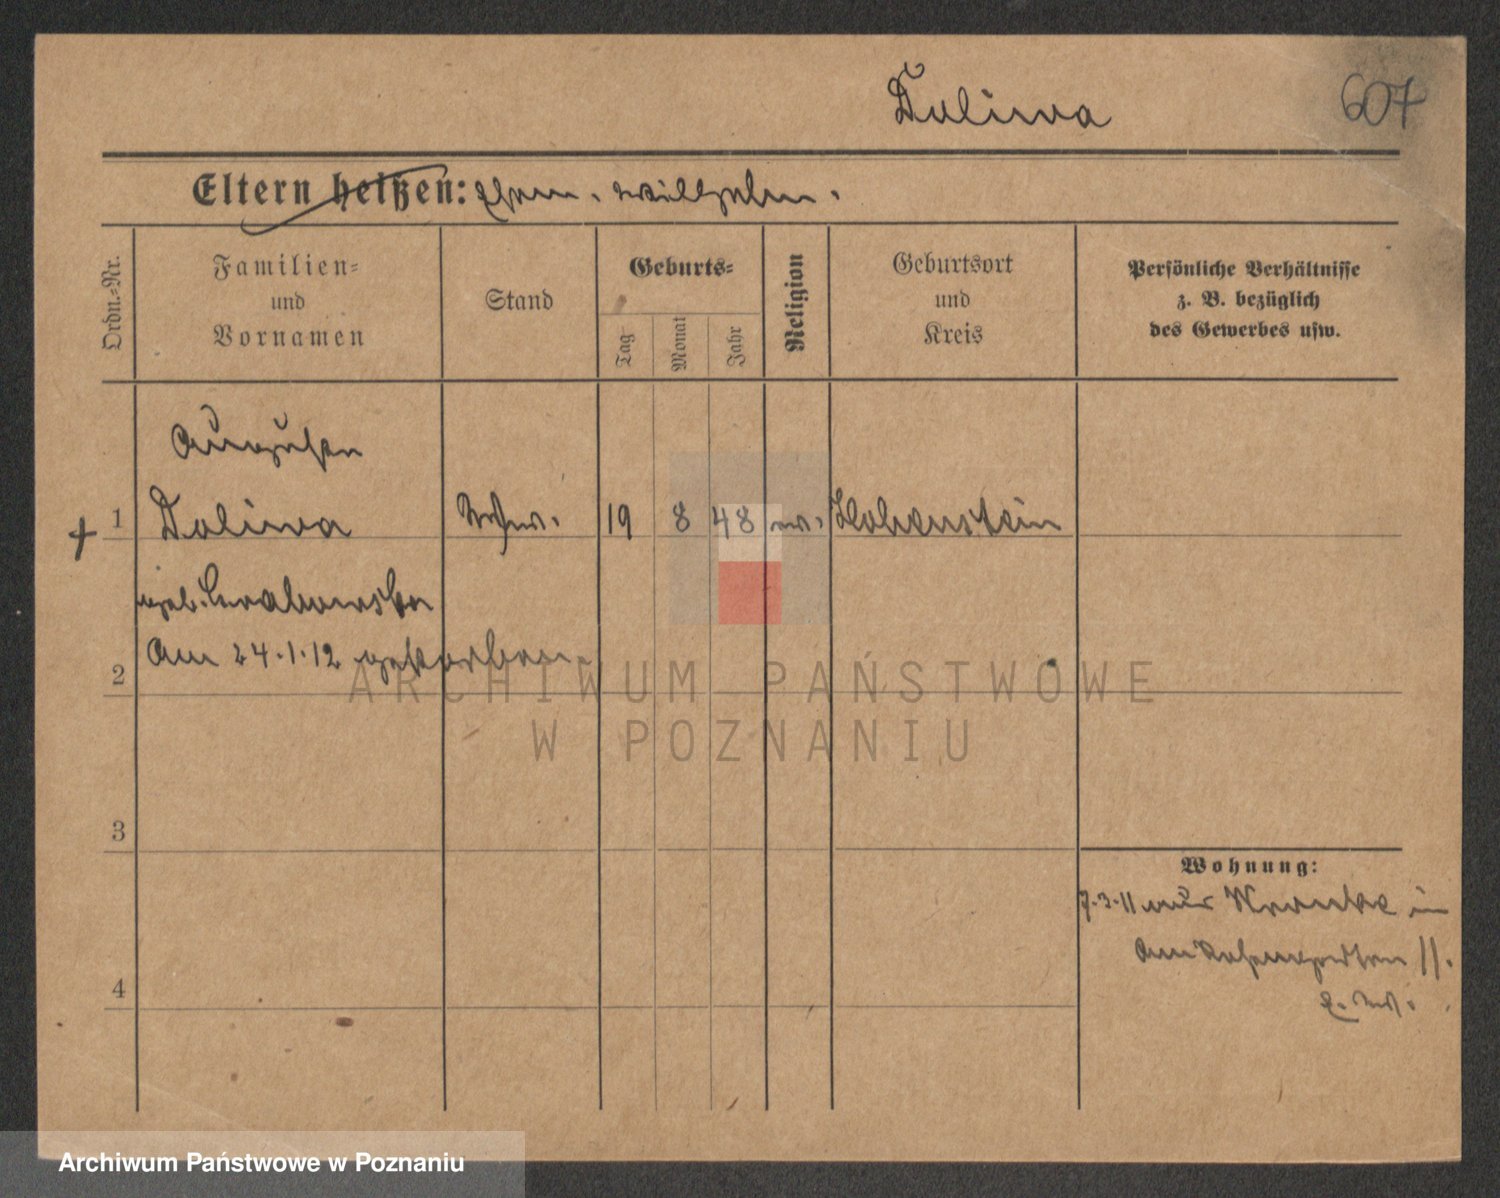 Doliwa
607
Eltern heißen: Ehem. Wilhelm.
Ordn.=Nr.
Familien=
und
Vornamen
Stand
Geburts=
Tag
Monat
Jahr
Religion
Geburtsort
und
Kreis
Persönliche Verhältnisse
z. B. bezüglich
des Gewerbes usw.
Auguste
+ 1 Doliwa Wwe. 19 8 48 ev. Hohenstein
geb. Grabowska
am 24.1.12 gestorben.
2
3
4
Wohnung:
7.3.11 aus Kranke in
am Rosengarten 11.
z. W.
ARCHIWUM PAŃSTWOWE
W POZNANIU
Archiwum Państwowe w Poznaniu